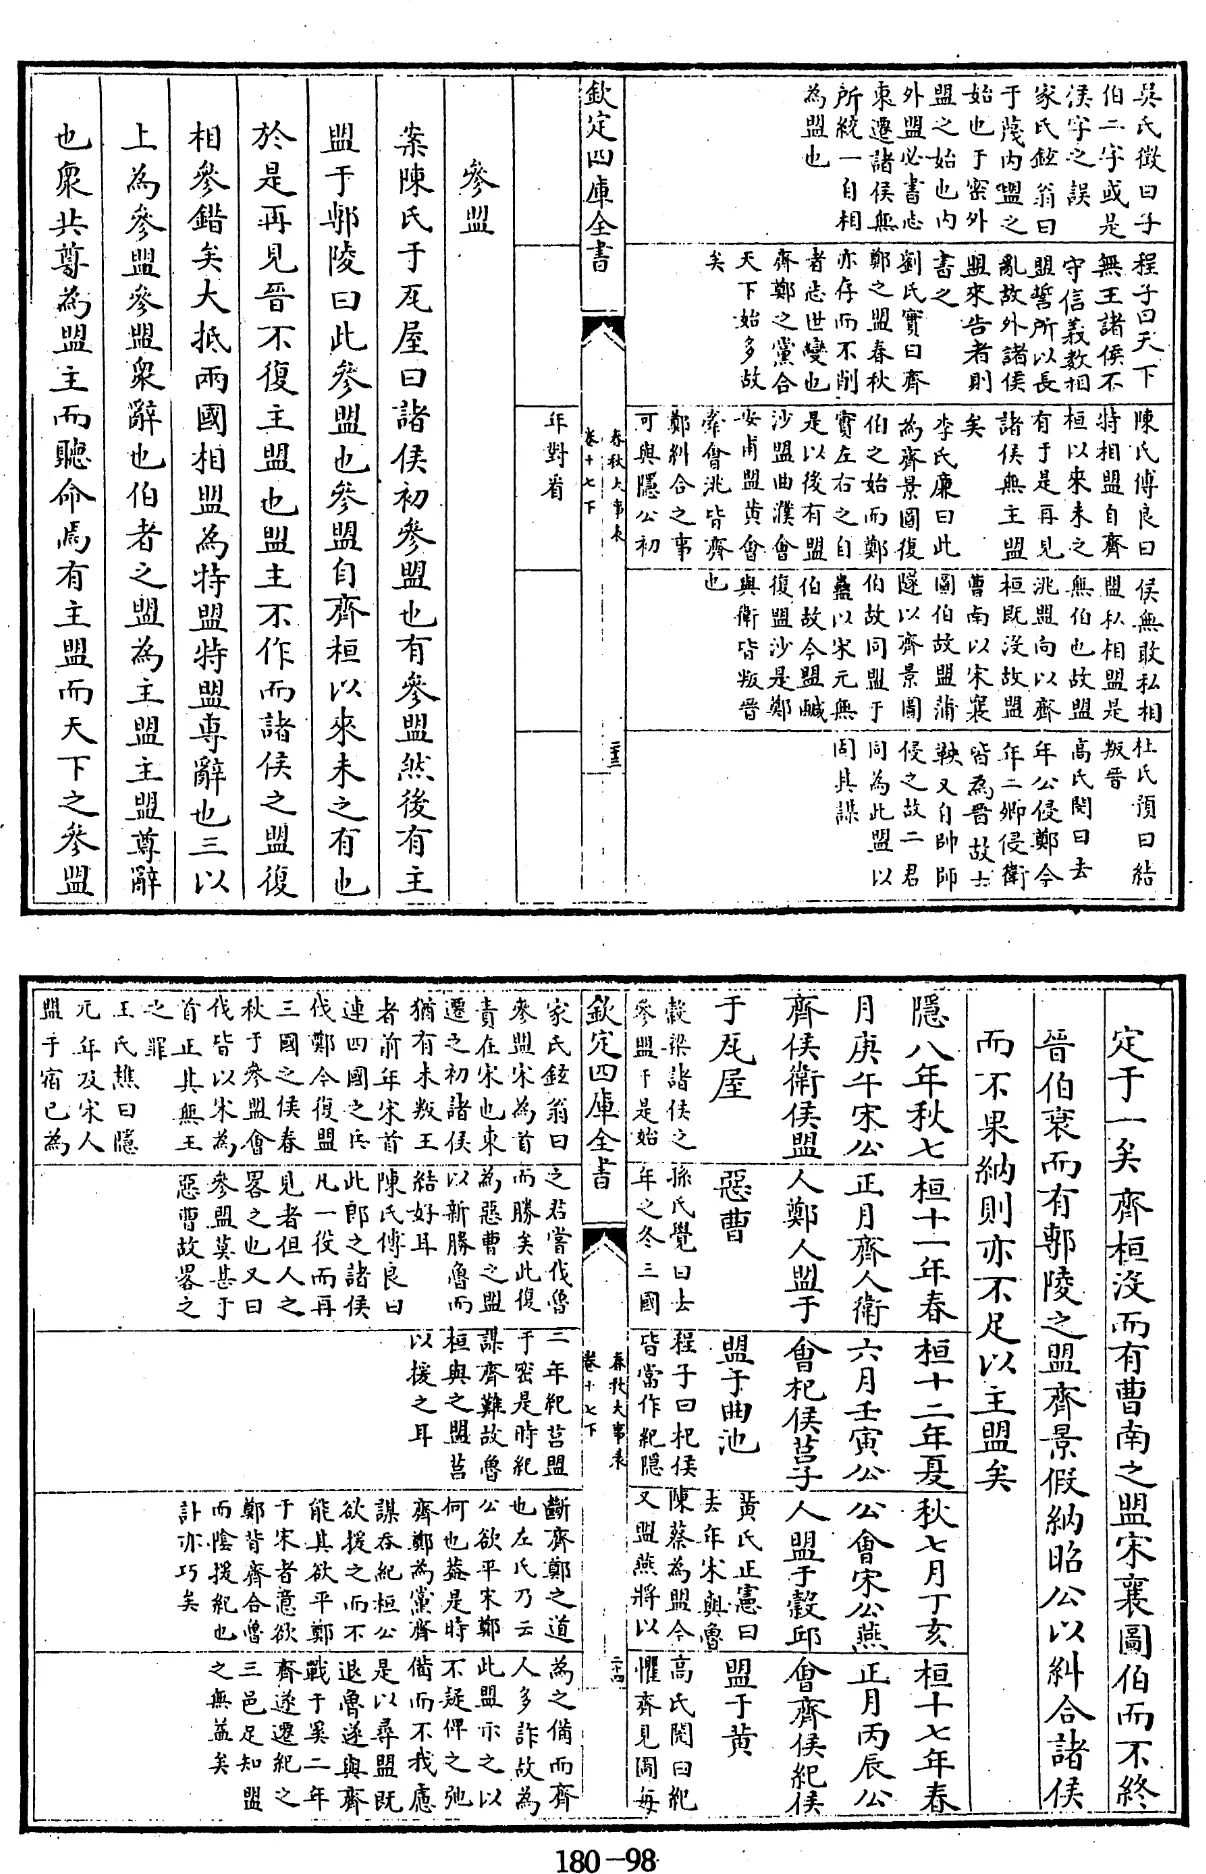 吳氏徵曰子
伯二字或是
侯字之誤
家氏鉉翁曰
于蔑内盟之
始也于密外
盟之始也内
外盟必書志
東遷諸侯無
所統一自相
為盟也
程子曰天下
無王諸侯不
守信義數相
盟誓所以長
亂故外諸侯
盟來告者則
書之
劉氏實曰齊
鄭之盟春秋
亦存而不削
者志世變也
齊鄭之黨合
天下始多故
矣
陳氏傅良曰
特相盟自齊
桓以來未之
有于是再見
諸侯無主盟
矣
李氏廉曰此
為齊景圖復
伯之始而鄭
實左右之自
是以後有盟
沙盟曲濮會
安甫盟黄會
牽會洮皆齊
鄭糾合之事
可與隱公初
年對看
侯無敢私相
盟私相盟是
無伯也故盟
洮盟向以齊
桓既没故盟
曹南以宋襄
圖伯故盟蒲
隧以齊景圖
伯故同盟于
蟲以宋元無
伯故今盟鹹
復盟沙是鄭
與衛皆叛晉
也
杜氏預曰結
叛晉
高氏閌曰去
年公侵鄭今
年二卿侵衛
皆為晉故士
鞅又自帥師
侵之故二君
同為此盟以
固其謀
欽定四庫全書
春秋大事表
卷十七下
二十三
參盟
案陳氏于瓦屋曰諸侯初參盟也有參盟然後有主
盟于鄟陵曰此參盟也參盟自齊桓以來未之有也
於是再見晉不復主盟也盟主不作而諸侯之盟復
相參錯矣大抵兩國相盟為特盟特盟專辭也三以
上為參盟參盟衆辭也伯者之盟為主盟主盟尊辭
也衆共尊為盟主而聽命焉有主盟而天下之參盟
定于一矣齊桓没而有曹南之盟宋襄圖伯而不終
晉伯衰而有鄟陵之盟齊景假納昭公以糾合諸侯
而不果納則亦不足以主盟矣
隱八年秋七
月庚午宋公
齊侯衛侯盟
于瓦屋
桓十一年春
正月齊人衛
人鄭人盟于
惡曹
桓十二年夏
六月壬寅公
會杞侯莒子
盟于曲池
秋七月丁亥
公會宋公燕
人盟于穀邱
桓十七年春
正月丙辰公
會齊侯紀侯
盟于黄
穀梁諸侯之
參盟于是始
孫氏覺曰去
年之冬三國
程子曰杞侯
皆當作紀隱
黄氏正憲曰
去年宋與魯
陳蔡為盟今
又盟燕將以
高氏閌曰紀
懼齊見圖每
欽定四庫全書
春秋大事表
卷十七下
二十四
家氏鉉翁曰
參盟宋為首
責在宋也東
遷之初諸侯
猶有未叛王
者前年宋首
連四國之兵
伐鄭今復盟
三國之侯春
秋于參盟會
伐皆以宋為
首正其無王
之罪
王氏樵曰隱
元年及宋人
盟于宿已為
之君嘗伐魯
而勝矣此復
為惡曹之盟
以新勝魯而
結好耳
陳氏傅良曰
此郎之諸侯
凡一役而再
見者但人之
畧之也又曰
參盟莫甚于
惡曹故畧之
二年紀莒盟
于密是時紀
謀齊難故魯
桓與之盟莒
以援之耳
斷齊鄭之道
也左氏乃云
公欲平宋鄭
何也葢是時
齊鄭為黨齊
謀吞紀桓公
欲援之而不
能其欲平鄭
于宋者意欲
鄭背齊合魯
而陰援紀也
計亦巧矣
為之備而齊
人多詐故為
此盟示之以
不疑俾之弛
備而不我慮
是以尋盟既
退魯遂與齊
戰于奚二年
齊遂遷紀之
三邑足知盟
之無益矣
180-98